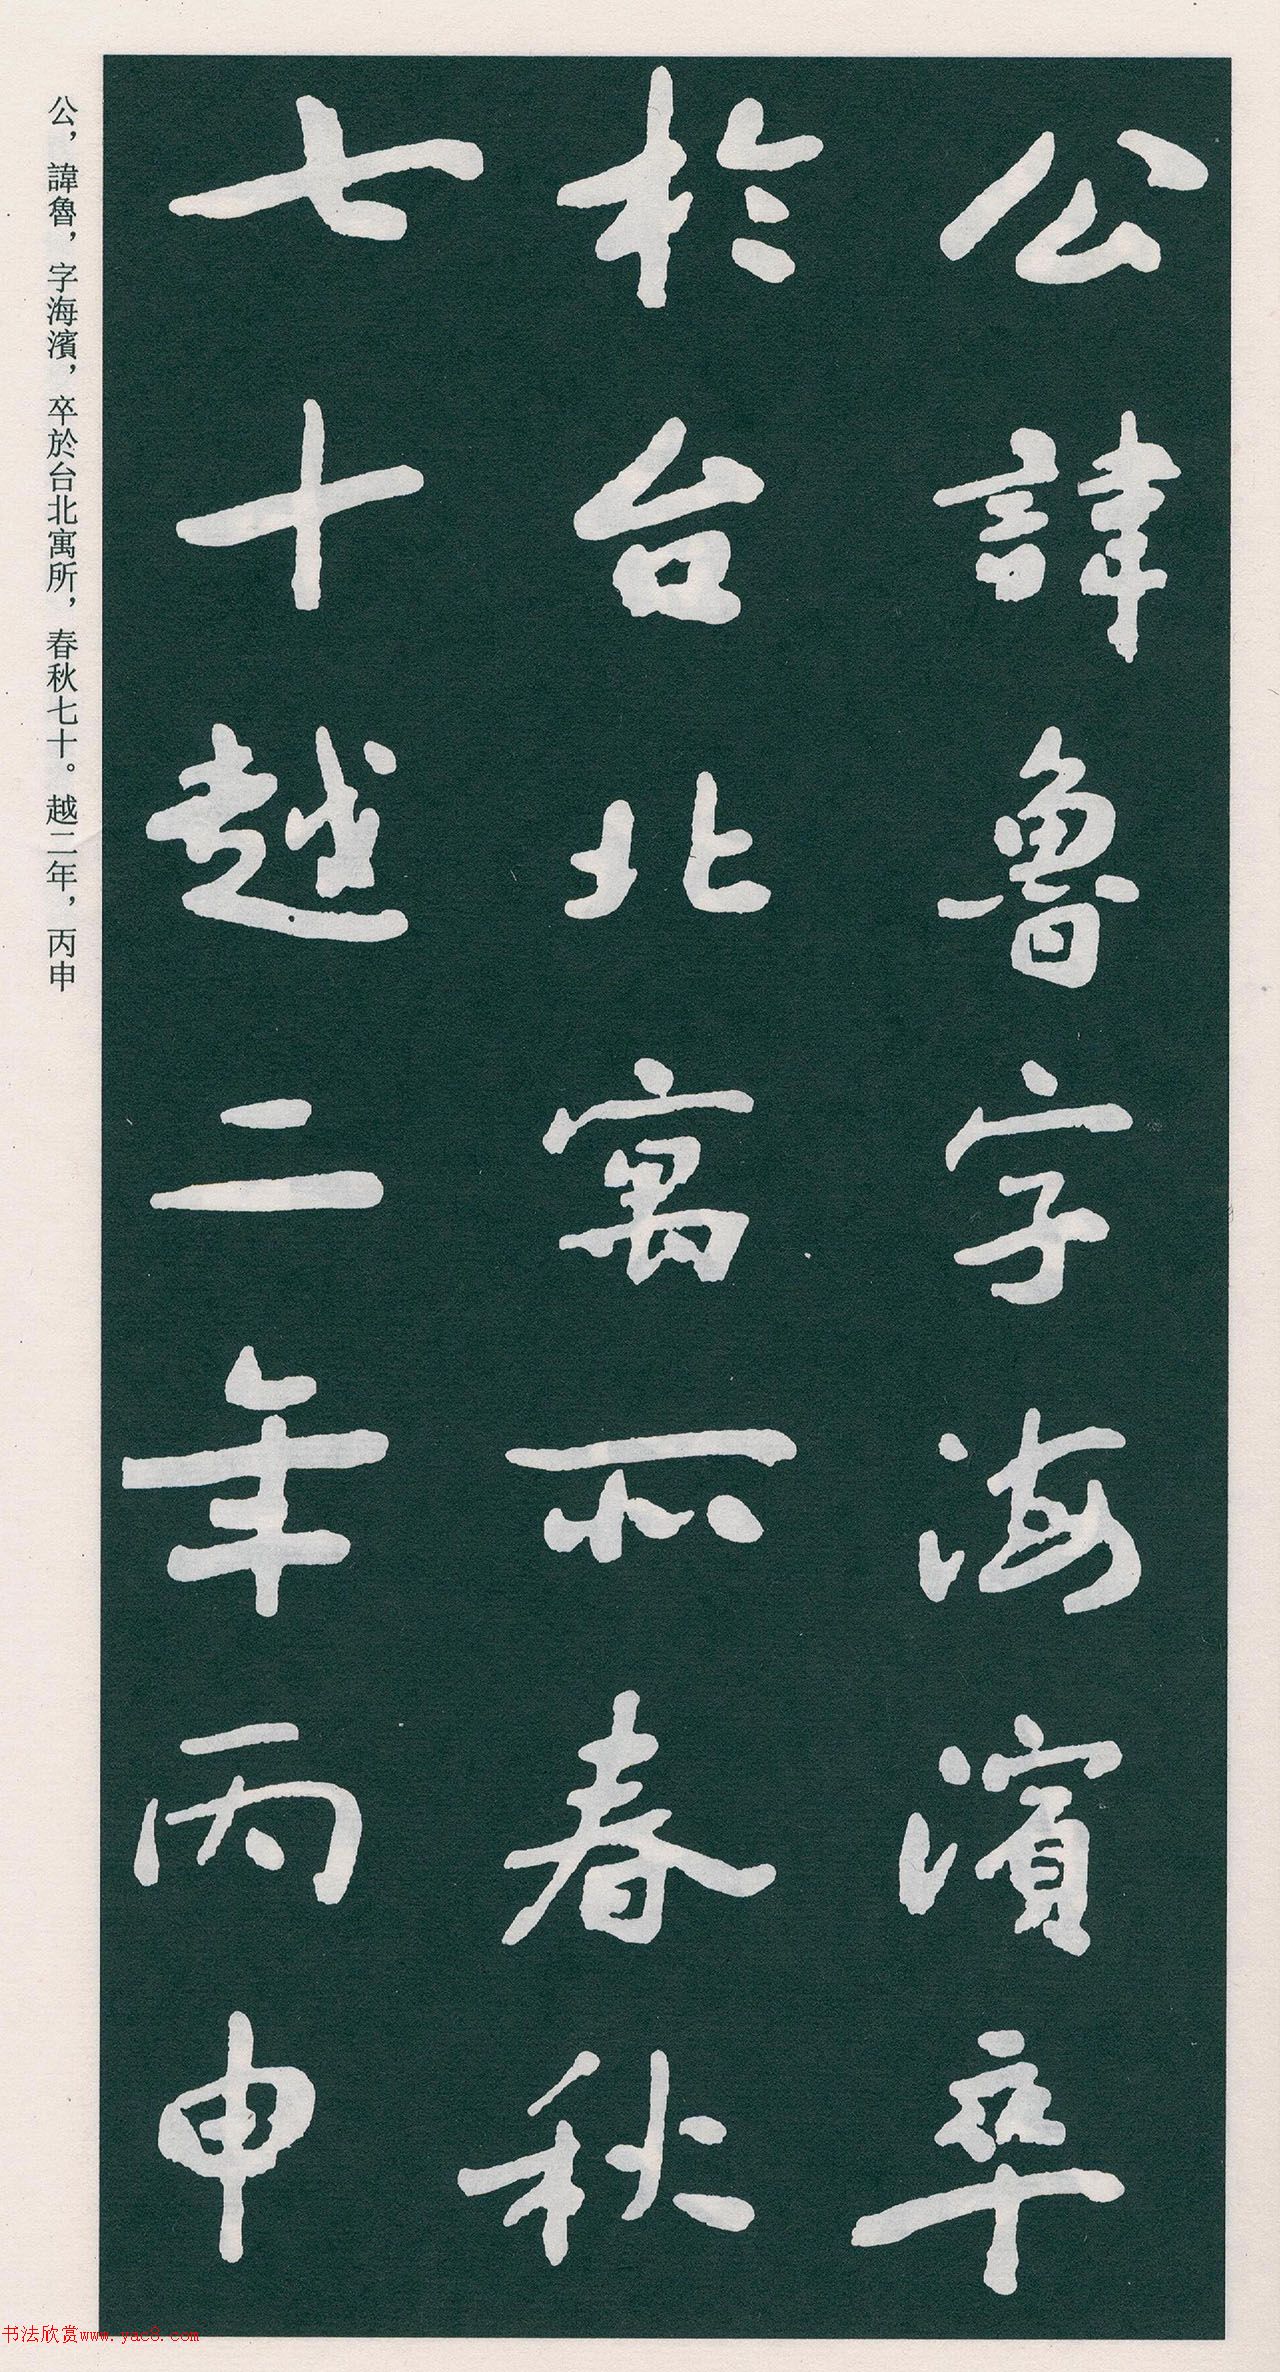 公諱魯字海濱卒
於台北寓所春秋
七十越二年丙申
公，諱魯，字海濱，卒於台北寓所，春秋七十。越二年，丙申
书法欣赏www.yac8.com